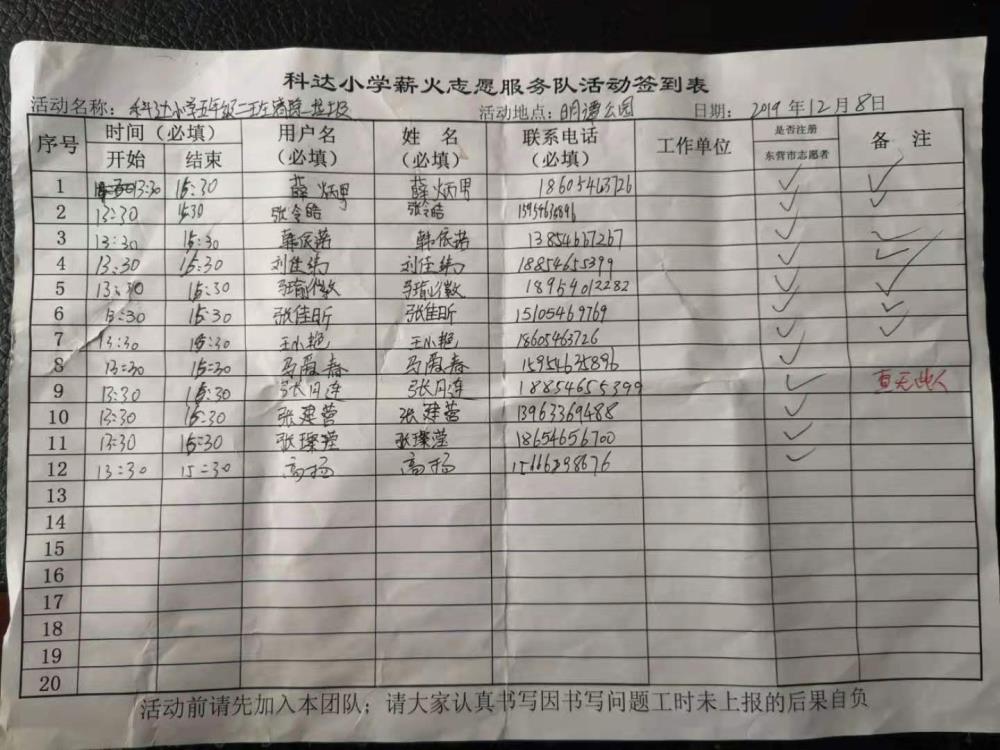 科达小学薪火志愿服务队活动签到表
活动名称: 科达小学五年级二班 活动地点: 明潭公园 日期: 2019年12月8日
序号 时间(必填) 用户名(必填) 姓 名(必填) 联系电话(必填) 工作单位 是否注册东营市志愿者 备 注
开始 结束
1 13:30 15:30 薛炳男 薛炳男 18605463726 ✓ ✓
2 13:30 15:30 张令皓 张令皓 15954635896 ✓ ✓
3 13:30 15:30 韩依诺 韩依诺 13854667267 ✓ ✓
4 13:30 15:30 刘佳纬 刘佳纬 18854655399 ✓ ✓
5 13:30 15:30 18954012282 ✓ ✓
6 13:30 15:30 张佳昕 张佳昕 15105469769 ✓ ✓
7 13:30 15:30 王小艳 王小艳 18605463726 ✓ ✓
8 13:30 15:30 马爱春 马爱春 15954635896 ✓
9 13:30 15:30 张月连 张月连 18854655399 ✓ 查无此人
10 13:30 15:30 张建蕾 张建蕾 13963369488 ✓
11 13:30 15:30 张璨滢 张璨滢 18654656700 ✓
12 13:30 15:30 高扬 高扬 15666298676 ✓
13
14
15
16
17
18
19
20
活动前请先加入本团队;请大家认真书写因书写问题工时未上报的后果自负